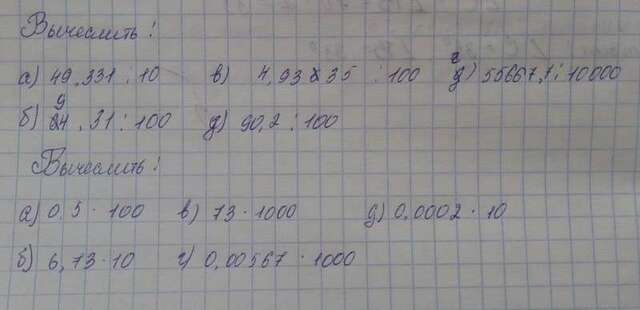 Вычеслить!
а) 49,331 : 10 в) 4,93835 : 100 г) 55667,1 : 10000
б) 94,31 : 100 д) 90,2 : 100
Вычеслить!
а) 0,5 · 100 в) 73 · 1000 д) 0,0002 · 10
б) 6,73 · 10 г) 0,00567 · 1000